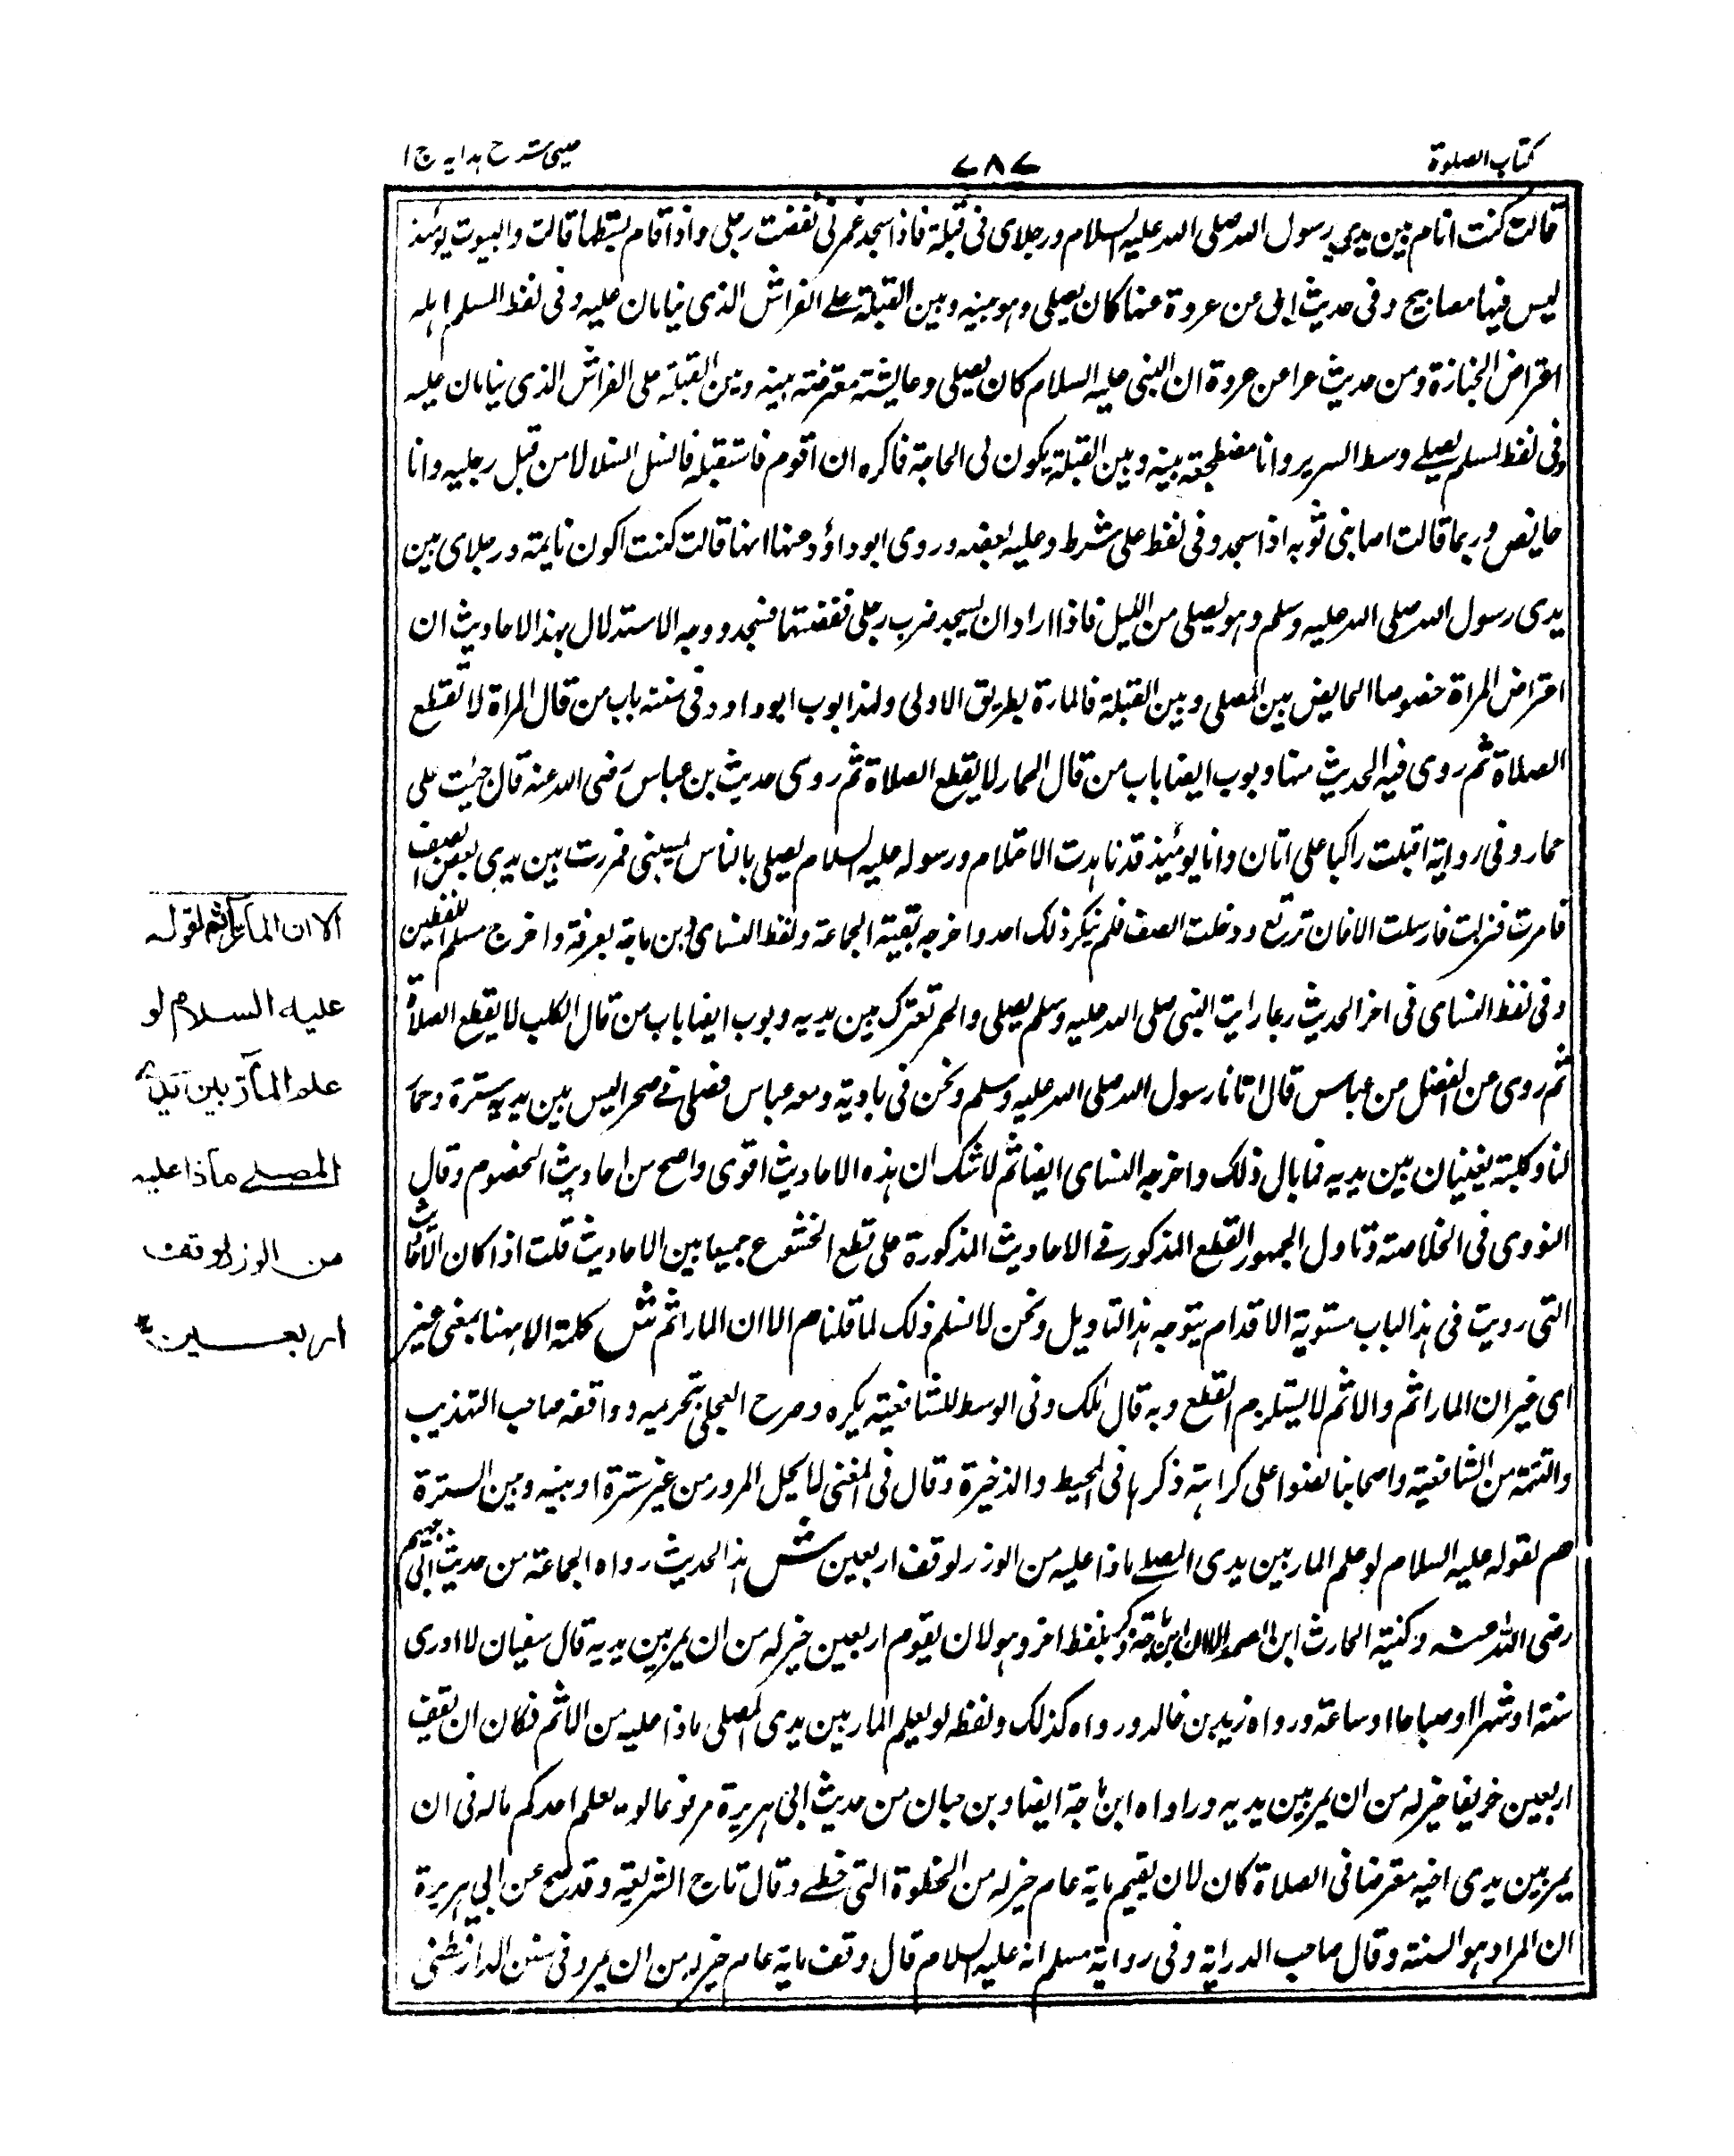 كتاب الصلوة
٧٨٧
عينى شرح هدايه ج ا
قالت كنت انام بين يدي رسول الله صلى الله عليه السلام ورجلاى فى قبلة فاذا سجد غمزنى فقبضت رجلى واذا قام بسطها قالت والبيوت يومئذ
ليس فيها مصابيح وفى حديث ابى عن عروة عنها كان يصلى وهو بينه وبين القبلة على الفراش الذى ينامان عليه وفى لفظ المسلم اهله
اعتراض الجنازة ومن حديث عراعن عروة ان النبى عليه السلام كان يصلى وعايشة معترضته بينه وبين القبلة على الفراش الذى ينامان عليه
وفى لفظ لمسلم يصلے وسط السرير وانا مضطجعة بينه وبين القبلة يكون لى الحاجة فاكره ان اقوم فاستقبله فانسل انسلالا من قبل رجليه وانا
حايض وربما قالت اصابنى ثوبه اذا سجد وفى لفظ على شرط وعليه بعضه وروى ابو داؤد عنها انها قالت كنت اكون نايمة ورجلاى بين
يدى رسول الله صلى الله عليه وسلم وهو يصلى من الليل فاذا اراد ان يسجد ضرب رجلى فقبضتها فسجد ووجه الاستدلال بهذا الاحاديث ان
اعتراض المراة خصوصا الحايض بين المصلى وبين القبلة فالمارة بطريق الاولى ولهذا بوب ابو داود فى سننه باب من قال المراة لا تقطع
الصلاة ثم روى فيه الحديث منها وبوب ايضا باب من قال الحمار لا يقطع الصلاة ثم روى حديث بن عباس رضى الله عنه قال جئت على
حمار وفى رواية اقبلت راكبا على اتان وانا يومئذ قد ناهزت الاحتلام ورسوله عليه السلام يصلى بالناس بمنى فمررت بين يدى بعض الصف
فامرت فنزلت فارسلت الاتان ترتع ودخلت الصف فلم ينكر ذلك احد واخرجه بقية الجماعة ولفظ النساى وبن ماجة بعرفة واخرج مسلم اللفظين
وفى لفظ النساى فى اخر الحديث ربما رايت النبى صلى الله عليه وسلم يصلى والحمر تعترك بين يديه وبوب ايضا باب من قال الكلب لا يقطع الصلاة
ثم روى عن الفضل من عباس قال اتانا رسول الله صلى الله عليه وسلم ونحن فى بادية ومعه عباس فصلى فے صحرا ليس بين يديه سترة وحمار
لنا وكلبة يعبثان بين يديه فما بال ذلك واخرجه النساى ايضا ثم لا شك ان هذه الاحاديث اقوى واصح من احاديث الخصوم وقال
النووى فى الخلاصة وتاول الجمهور القطع المذكور فے الاحاديث المذكورة على قطع الخشوع جميعا بين الاحاديث قلت اذا كان الاحاديث
التى رويت فى هذا الباب مستوية الاقدام يتوجه هذا التاويل ونحن لا نسلم ذلك لما قلنا م الا ان المار اثم ش كلمة الا ههنا بمعنى غير
اى غير ان المار اثم والاثم لا يستلزم القطع وبه قال ملك وفى الوسط للشافعية يكره وصرح العجلى بتحريمه ووافقه صاحب التهذيب
والتتمة من الشافعية واصحابنا نصوا على كراهته ذكرها فى المحيط والذخيرة وقال فى المغنى لا يحل المرور من غير سترة او بينه وبين السترة
م لقوله عليه السلام لو علم المار بين يدى المصلے ماذا عليه من الوزر لوقف اربعين ش هذا الحديث رواه الجماعة من حديث ابى جهيم
رضى الله عنه وكنية الحارث ابن الصمة الا ان ابن ماجة ذكر بلفظ اخر وهو لان يقوم اربعين خير له من ان يمر بين يديه قال سفيان لا ادرى
سنة او شهرا او صباحا او ساعة ورواه زيد بن خالد ورواه كذلك ولفظه لو يعلم المار بين يدى المصلى ماذا عليه من الاثم فكان ان يقف
اربعين خريفا خير له من ان يمر بين يديه ورواه ابن ماجة ايضا وبن حبان من حديث ابى هريرة مرفوعا لو يعلم احدكم ماله فى ان
يمر بين يدى اخيه معترضا فى الصلاة كان لان يقيم ماية عام خير له من الخطوة التى خطے وقال تاج الشريعة وقد صح عن ابى هريرة
ان المراد هو السنة وقال صاحب الدراية وفى رواية مسلم انه عليه السلام قال وقف ماية عام خير له من ان يمر وفى سنن الدارقطنى
الا ان المار آثم لقوله
عليه السلام لو
علم المار بين يدى
المصلے ماذا عليه
من الوزر لوقف
اربعين